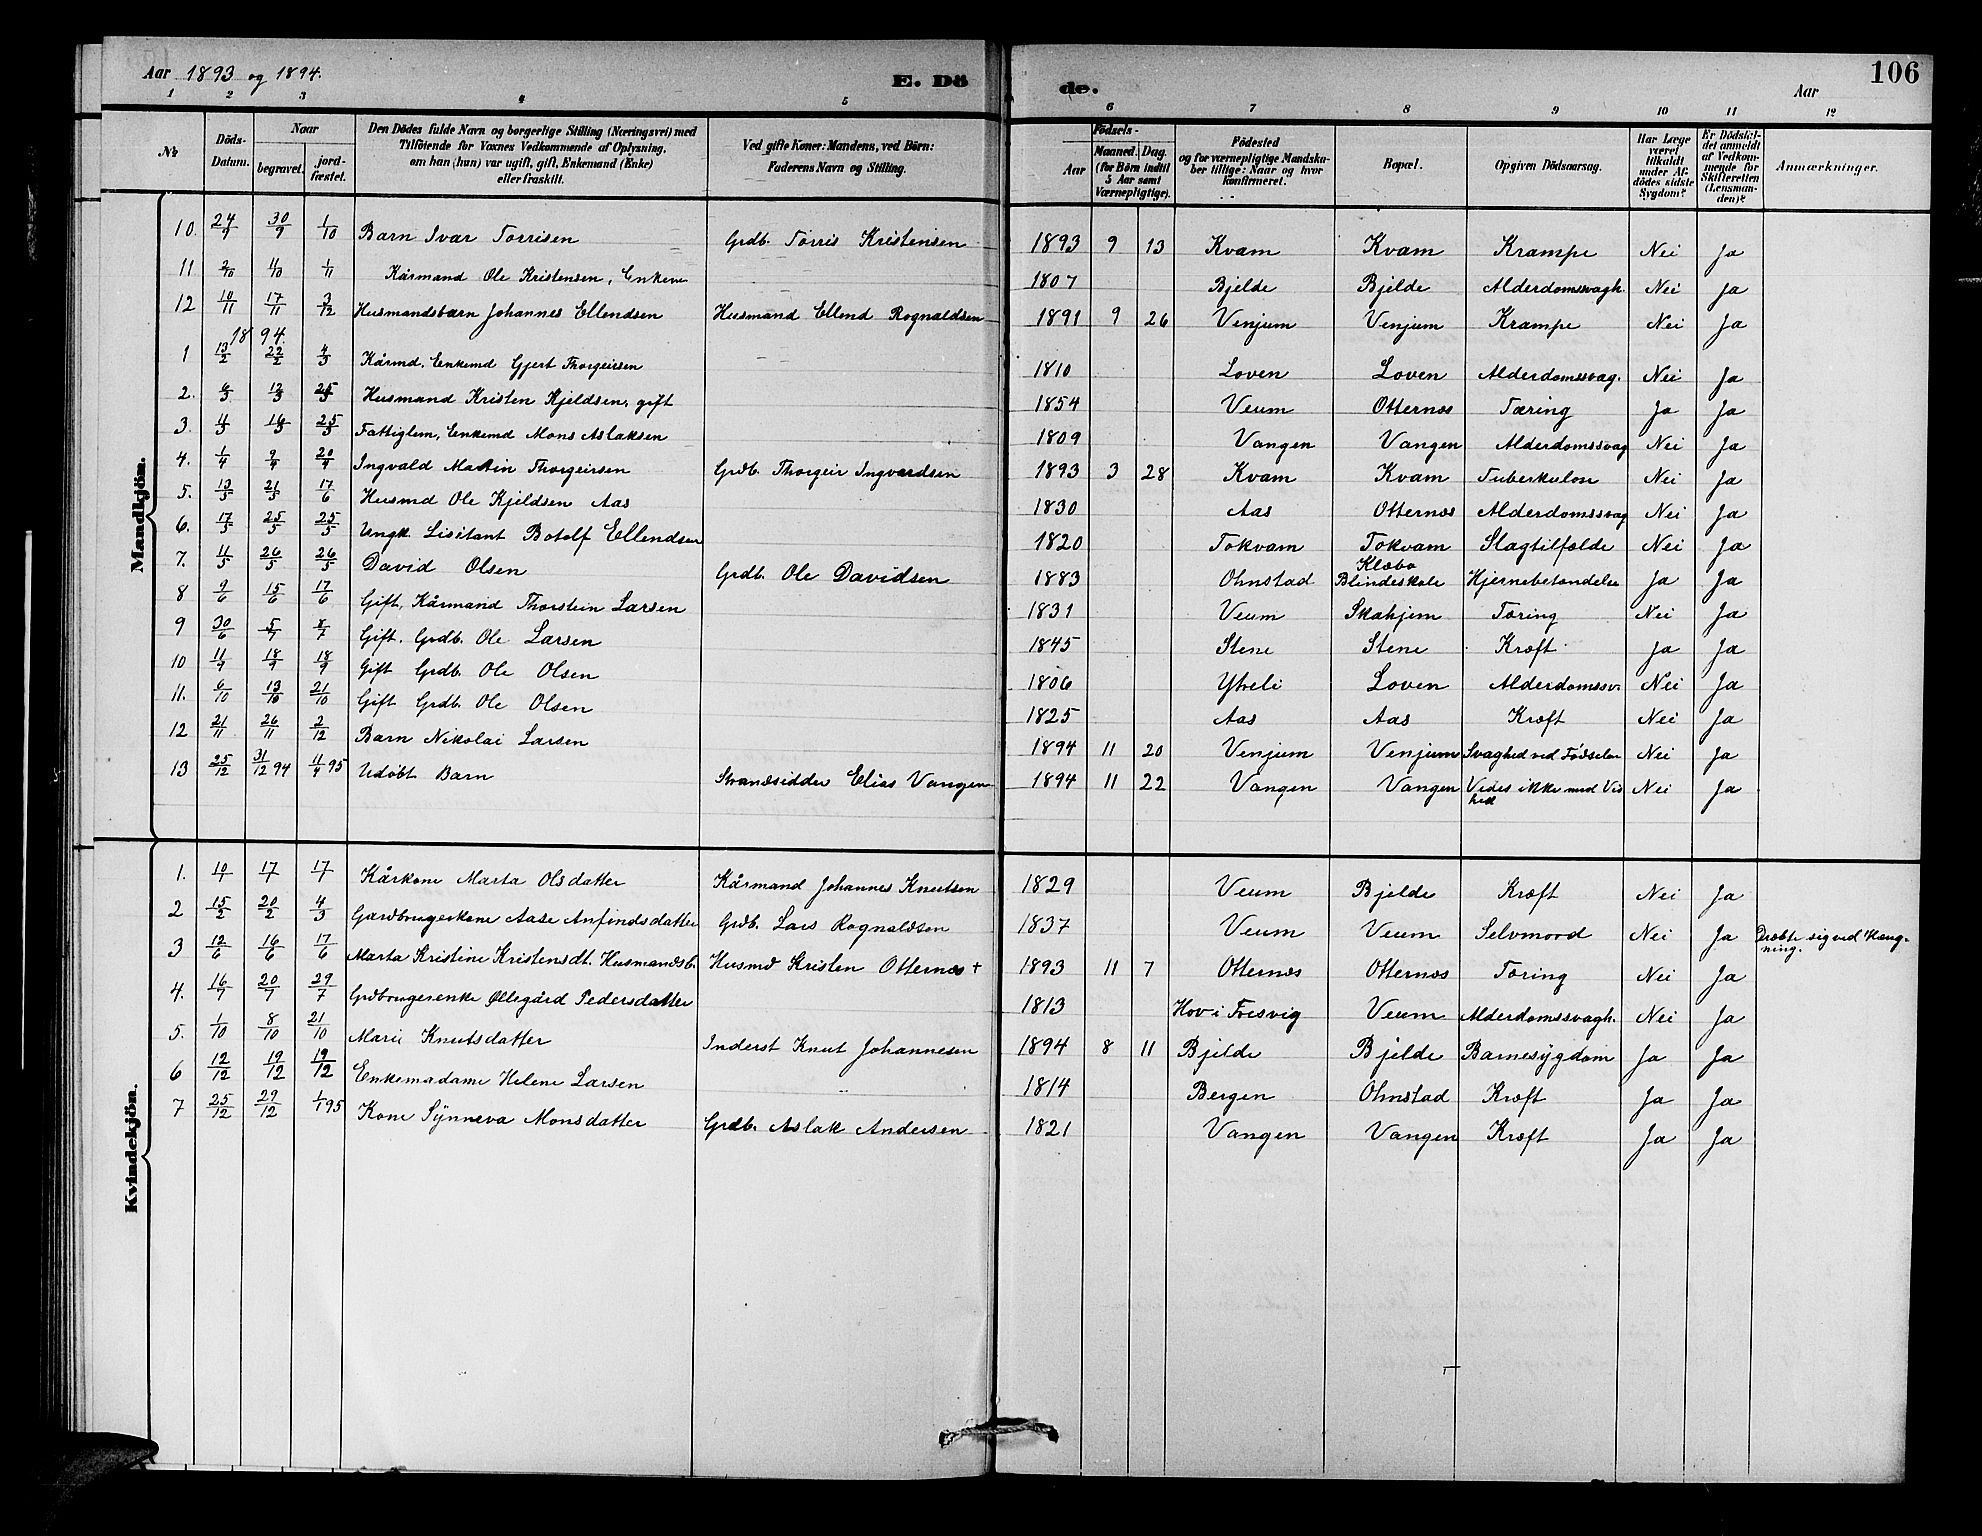 Aar 1893 og 1894. E. Dö de. Aar 106
1 2 3 4 5 6 7 8 9 10 11 12
№ Döds-Datum. Naar begravet. jordfæstet. Den Dödes fulde Navn og borgerlige Stilling (Næringsvei) med Tilföiende for Voxnes Vedkommende af Oplysning, om han (hun) var ugift, gift, Enkemand (Enke) eller fraskilt. Ved gifte Koner: Mandens, ved Börn: Faderens Navn og Stilling. Födsels- Aar Maaned. Dag. (for Börn indtil 5 Aar samt Værnepligtige). Födested og for værnepligtige Mandskaber tillige: Naar og hvor konfirmeret. Bopæl. Opgiven Dödsaarsag. Har Læge været tilkaldt under Afdödes sidste Sygdom? Er Dödsfaldet anmeldt af Vedkommende for Skifteretten (Lensmanden)? Anmærkninger.
Mandkjön.
10. 24/9 30/9 1/10 Barn Ivar Torrisen Grdb. Torris Kristensen 1893 9 13 Kvam Kvam Krampe Nei Ja
11 2/10 11/10 1/11 Kårmand Ole Kristensen, Enkem 1807 Bjelde Bjelde Alderdomssvagh. Nei Ja
12 10/11 17/11 3/12 Husmandsbarn Johannes Ellendsen Husmand Ellend Rognaldsen 1891 9 26 Venjum Venjum Krampe Nei Ja
1894.
1 13/2 22/2 4/3 Kårmd. Enkemd Gjert Thorgeirsen 1810 Loven Loven Alderdomssvag. Nei Ja
2. 6/3 12/3 25/3 Husmand Kristen Kjeldsen, gift 1854 Veum Otternes Tæring Ja Ja
3. 11/3 16/3 25/3 Fattiglem, Enkemd Mons Aslaksen 1809 Vangen Vangen Alderdomssvag Nei Ja
4. 1/4 9/4 20/4 Ingvald Martin Thorgeirsen Grdb. Thorgeir Ingvardsen 1893 3 28 Kvam Kvam Tuberkulon Nei Ja
5. 13/5 21/5 17/6 Husmd Ole Kjeldsen Aas 1830 Aas Otternes Alderdomssvag Nei Ja
6. 17/5 25/5 25/5 Ungk. Lisitant Botolf Ellendsen 1820 Tokvam Tokvam Slagtilfælde Nei Ja
7. 11/5 26/5 26/5 David Olsen Grdb. Ole Davidsen 1883 Ohnstad Klæbo Blindeskole Hjernebetændelse Ja Ja
8 9/6 15/6 17/6 Gift, Kårmand Thorstein Larsen 1831 Veum Skahjem Tæring Nei Ja
9 30/6 5/7 Gift. Grdb. Ole Larsen 1845 Stene Stene Kræft Ja Ja
10 11/9 18/9 18/9 Gift Grdb. Ole Olsen 1806 Ytreli Loven Alderdomssv. Nei Ja
11. 6/10 13/10 21/10 Gift Grdb. Ole Olsen 1825 Aas Aas Kræft Nei Ja
12 21/11 26/11 2/12 Barn Nikolai Larsen 1894 11 20 Venjum Venjum Svaghed ved Födselen Nei Ja
13 25/12 31/12 94 11/4 95 Udöbt Barn Strandsidder Elias Vangen 1894 11 22 Vangen Vangen Vides ikke med Vished Nei Ja
Kvindekjön.
1. 10/1 17/1 17/1 Kårkone Marta Olsdatter Kårmand Johannes Knutsen 1829 Veum Bjelde Kræft Nei Ja
2 15/2 20/2 4/3 Gardbrugerkone Aase Anfindsdatter Grdb. Lars Rognaldsen 1837 Veum Veum Selvmord Nei Ja Dræbte sig ved Hængning.
3 12/6 16/6 17/6 Marta Kristine Kristensdt. Husmandsb. Husmd Kristen Otternes + 1893 11 7 Otternes Otternes Tæring Nei Ja
4. 16/7 20/7 29/7 Grdbrugerenke Öllegård Pedersdatter 1813 Hov i Fresvig Veum Alderdomssvagh. Nei Ja
5. 1/10 8/10 21/10 Marie Knutsdatter Inderst Knut Johannesen 1894 8 11 Bjelde Bjelde Barnesygdom Ja Ja
6 12/12 19/12 19/12 Enkemadame Helene Larsen 1814 Bergen Ohnstad Kræft Ja Ja
7 25/12 29/12 1/1 95 Kone Synneva Monsdatter Grdb. Aslak Andersen 1821 Vangen Vangen Kræft Ja Ja